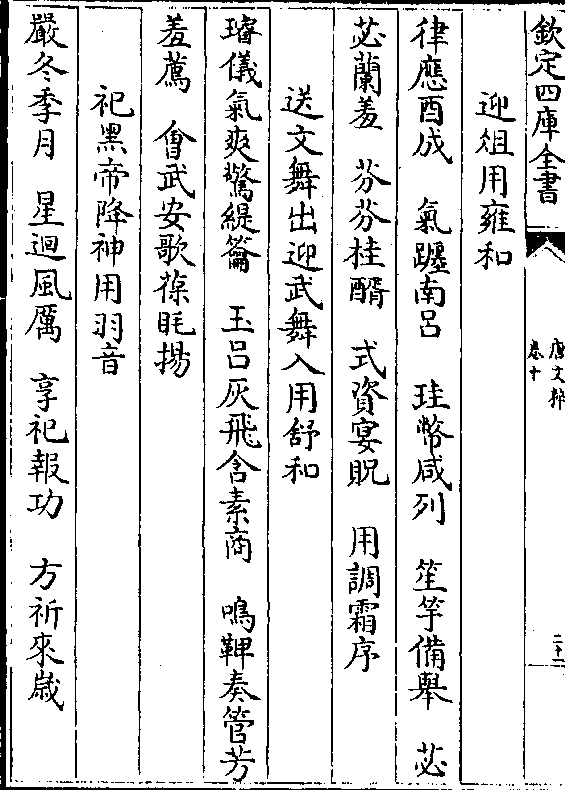 欽定四庫全書
唐文粹
卷十
二十一
迎俎用雍和
律應酉成　氣躔南呂　珪幣咸列　笙竽備舉　苾
苾蘭羞　芬芬桂醑　式資宴貺　用調霜序
送文舞出迎武舞入用舒和
璿儀氣爽驚緹籥　玉呂灰飛含素商　鳴鞞奏管芳
羞薦　會武安歌葆眊揚
祀黑帝降神用羽音
嚴冬季月　星迴風厲　享祀報功　方祈來歲